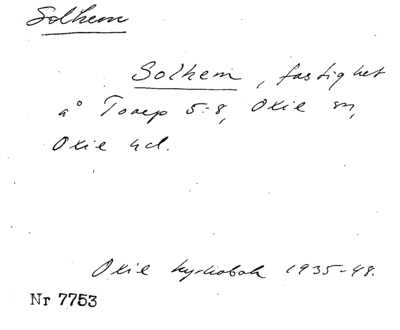 Solhem
Solhem, fastighet
å Toarp 5:8, Oxie sn,
Oxie hd.
Oxie kyrkobok 1935-48.
Nr 7753